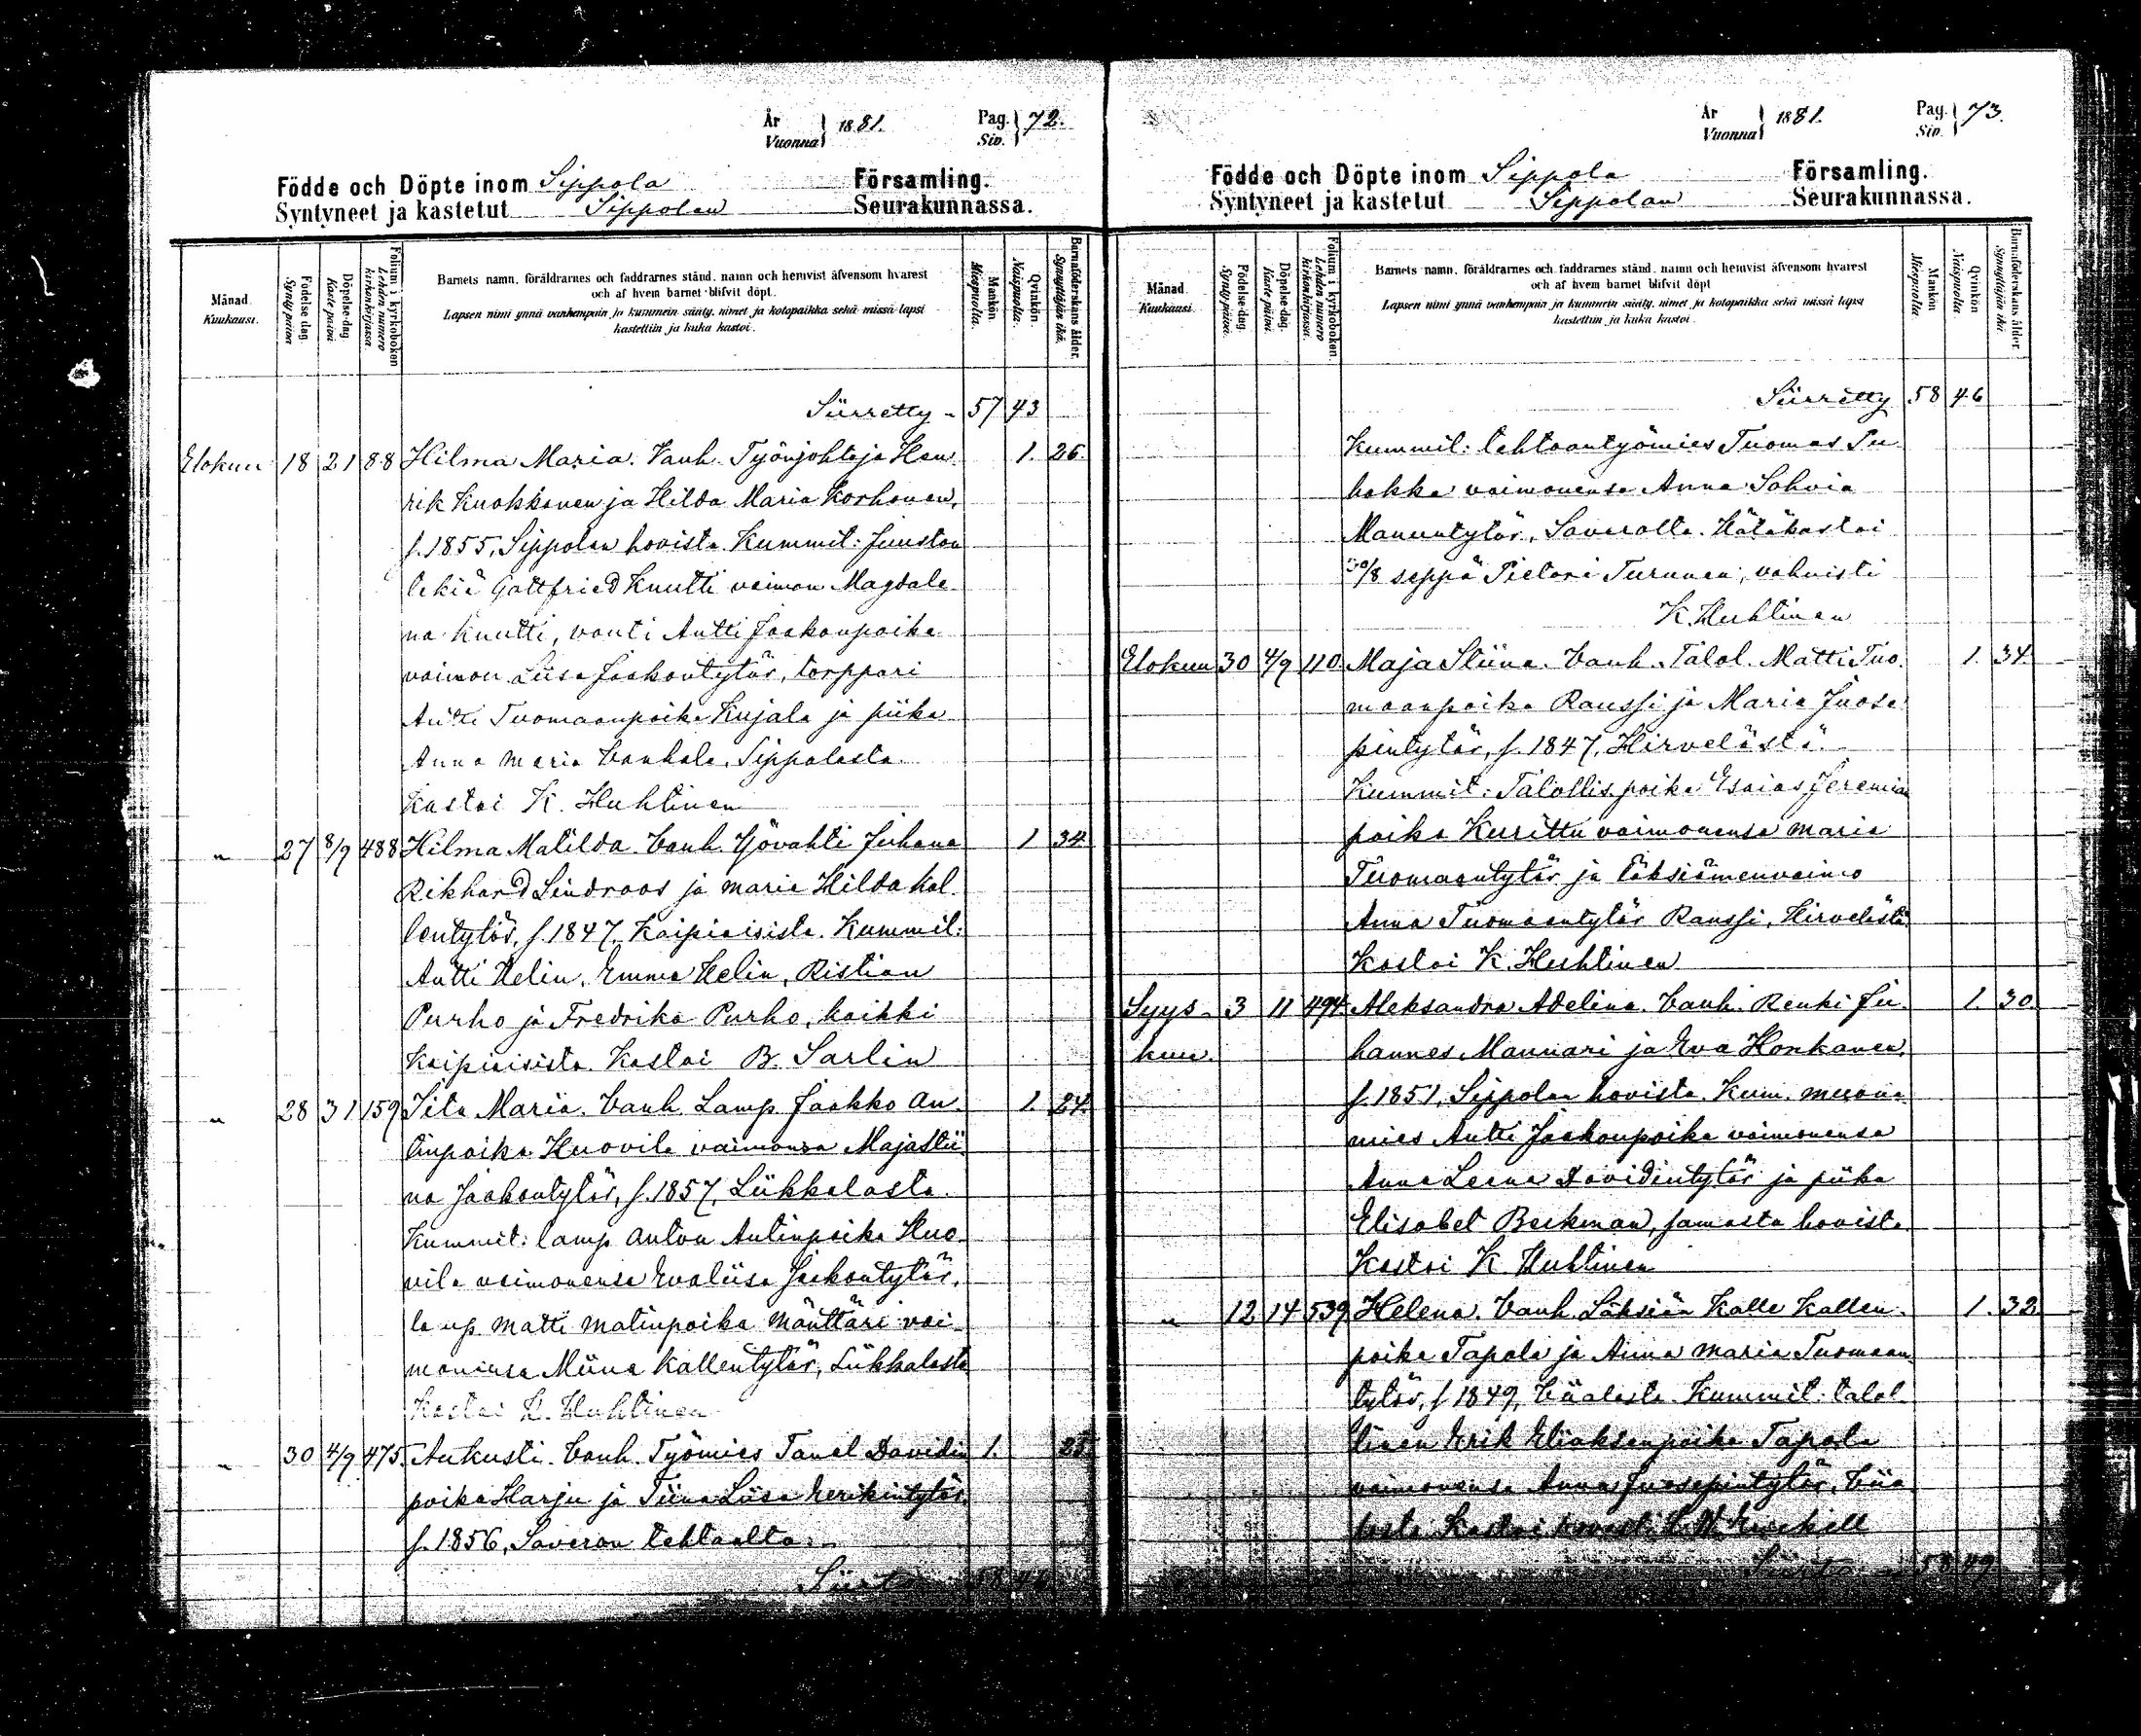 År
Vuonna 1881.
Pag.
Siv. 72.
Födde och Döpte inom Sippola Församling.
Syntyneet ja kastetut Sippolan Seurakunnassa.
Månad.
Kuukausi.
Födelse dag.
Synty päivä
Döpelse-dag
Kaste päivä
Folium i kyrkoboken
Lehden numero kirkonkirjassa.
Barnets namn, föräldrarnes och faddrarnes stånd, namn och hemvist äfvensom hvarest
och af hvem barnet blifvit döpt.
Lapsen nimi ynnä vanhempain ja kummein sääty, nimet ja kotopaikka sekä missä lapsi
kastettiin ja kuka kastoi.
Mankön.
Miespuolia.
Qvinkön.
Naispuolia.
Barnaföderskans ålder.
Synnyttäjän ikä.
Siirretty - 57 43
Elokuu 18 21 88 Hilma Maria. Vanh. Työnjohtaja Hen- 1. 26.
rik Kuokkanen ja Hilda Maria Korhonen,
s. 1855, Sippolan hovista. Kummit: Juuston
tekiä Gottfried Knutti vaimon Magdale-
na Knutti, vouti Antti Jaakonpoika
vaimon Liisa Jaakontytär, torppari
Antti Tuomaanpoika Kujala ja piika
Anna Maria Vanhala, Sippolasta.
Kastoi K. Huhtinen
" 27 8/9 488 Hilma Matilda. Vanh. Yövahti Juhana 1 34
Rikhard Lindroos ja Maria Hilda Kal-
lentytär, s. 1847, Kaipiaisista. Kummit:
Antti Helin, Emma Helin, Ristian
Purho ja Fredrika Purho, kaikki
Kaipiaisista. Kastoi B. Sarlin
" 28 31 159 Iita Maria. Vanh. Lamp. Jaakko An- 1. 24.
tinpoika Huovila vaimonsa Majastii-
na Jaakontytär, s. 1857, Liikkalasta.
Kummit: lamp. Anton Antinpoika Huo-
vila vaimonensa Evaliisa Jaakontytär,
lamp. Matti Matinpoika Mänttäri vai-
monensa Miina Kallentytär, Liikkalasta
Kastoi K. Huhtinen
" 30 4/9 475. Aukusti. Vanh. Työmies Tanel Davidin 1. 25.
poika Harju ja Tiina Liisa Eerikintytär
s. 1856, Saveron tehtaalta.
Siirto 58 46
År
Vuonna 1881.
Pag.
Siv. 73.
Födde och Döpte inom Sippola Församling.
Syntyneet ja kastetut Sippolan Seurakunnassa.
Månad
Kuukausi
Födelse-dag.
Synty päivä.
Döpelse-dag.
Kaste päivä.
Folium i kyrkoboken.
Lehden numero kirkonkirjassa.
Barnets namn, föräldrarnes och faddrarnes stånd, namn och hemvist äfvensom hvarest
och af hvem barnet blifvit döpt
Lapsen nimi ynnä vanhempain ja kummein sääty, nimet ja kotopaikka sekä missä lapsi
kastettiin ja kuka kastoi.
Mankön
Miespuolia
Qvinkön
Naispuolia
Barnaföderskans ålder.
Synnyttäjän ikä.
Siirretty 58 46
Kummit: tehtaantyömies Tuomas Pu
hakka vaimonensa Anna Sohvia
Manuntytär, Saverolta. Hätäkastoi
30/8 seppä Pietari Turunen, vahvisti
K. Huhtinen
Elokuu 30 4/9 110. Maja Stiina. Vanh. Talol. Matti Tuo- 1. 34.
maanpoika Ranssi ja Maria Juose-
pintytär, s. 1847, Hirvelästä.
Kummit: Talollis.poika Esaias Jeremian
poika Kurittu vaimonensa Maria
Tuomaantytär ja läksiämenvaimo
Anna Tuomaantytär Ranssi, Hirvelästä
Kastoi K. Huhtinen
Syys- 3 11 494. Aleksandra Adelina. Vanh. Renki Ju- 1. 30.
kuu. hannes Mannari ja Eva Honkanen,
s. 1851, Sippolan hovista. Kum. muona-
mies Antti Jaakonpoika vaimonensa
Anna Leena Davidintytär ja piika
Elisabet Beckman, samasta hovista.
Kastoi K. Huhtinen
" 12 14 539 Helena. Vanh. Läksiän Kalle Kallen- 1. 32.
poika Tapola ja Anna Maria Tuomaan-
tytär, s 1849, Viialasta. Kummit: talol-
linen Erik Eliaksenpoika Tapola
vaimonensa Anna Juosepintytär, Viia-
lasta Kastoi
Siirto 58 49.